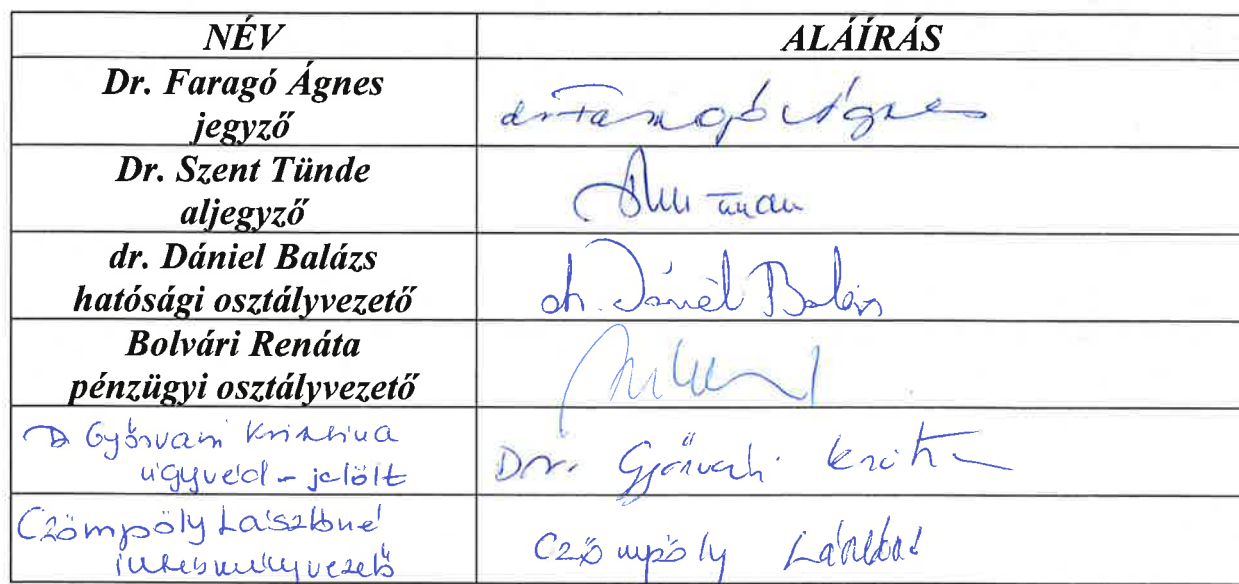 NÉV ALÁÍRÁS
Dr. Faragó Ágnes
jegyző
dr Faragó Ágnes
Dr. Szent Tünde
aljegyző
dr. Dániel Balázs
hatósági osztályvezető
dr. Dániel Balázs
Bolvári Renáta
pénzügyi osztályvezető
Dr Győrvári Krisztina
ügyvéd - jelölt
Dr. Győrvári Kriszti
Czömpöly Lászlóné
intézményvezető
Czömpöly Lászlóné